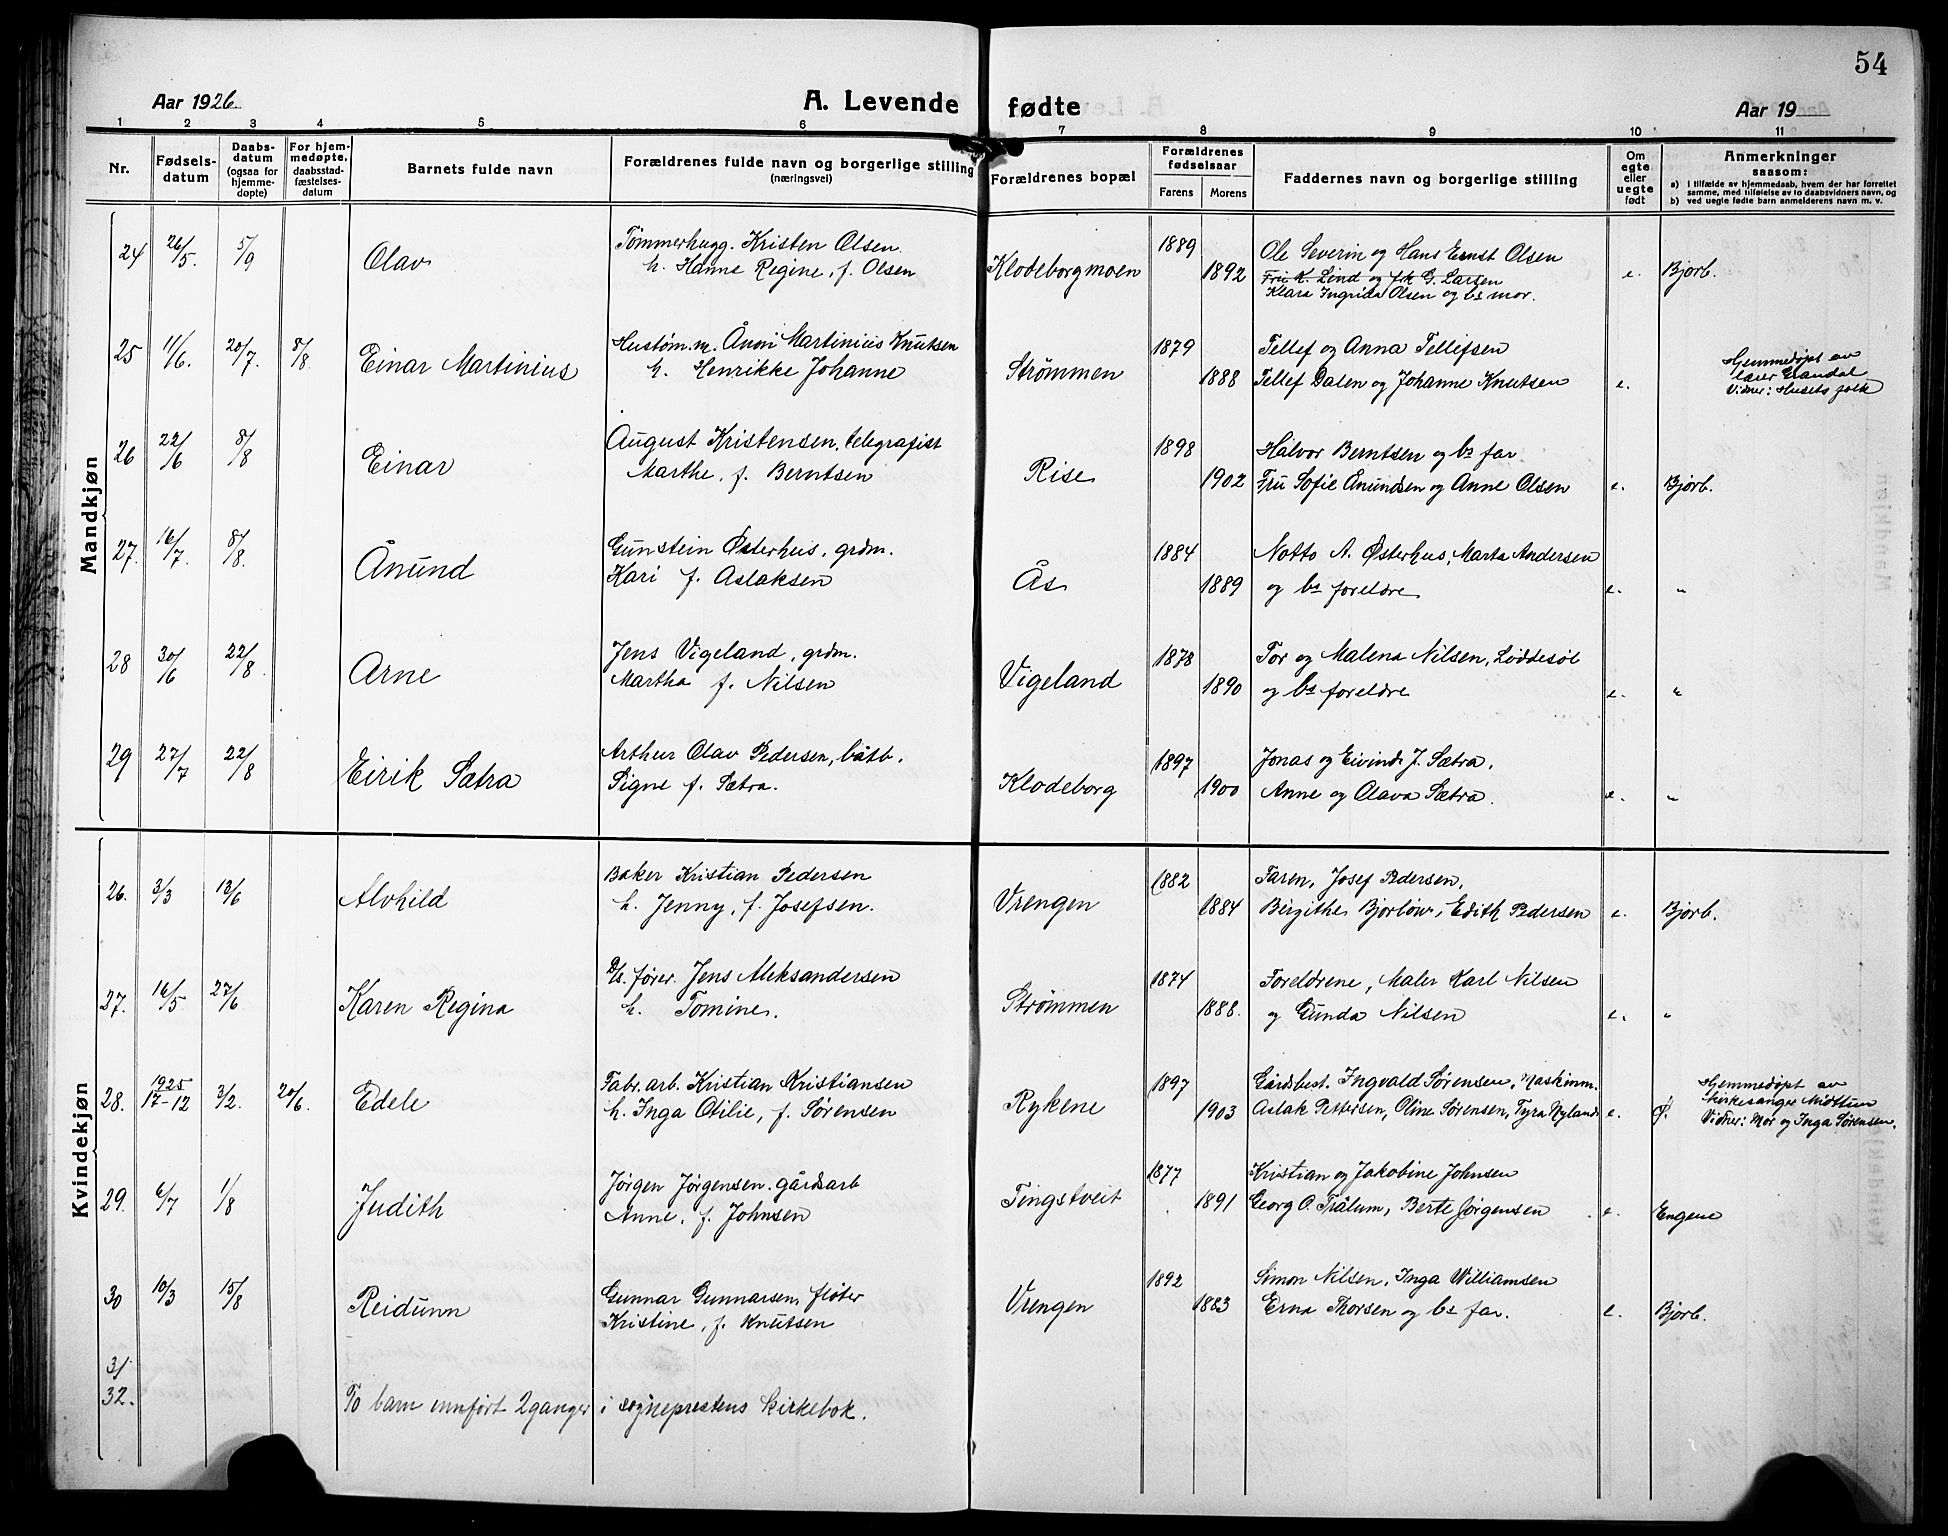 54
Aar 1926.
A. Levende fødte
Aar 19
1 2 3 4 5 6 7 8 9 10 11
Nr.
Fødsels-
datum
Daabs-
datum
(ogsaa for
hjemme-
døpte)
For hjem-
medøpte,
daabsstad-
fæstelses-
datum
Barnets fulde navn
Forældrenes fulde navn og borgerlige stilling
(næringsvei)
Forældrenes bopæl
Forældrenes
fødselsaar
Farens Morens
Faddernes navn og borgerlige stilling
Om
egte
eller
uegte
født
Anmerkninger
saasom:
a) i tilfælde av hjemmedaab, hvem der har forrettet
samme, med tilføielse av to daabsvidners navn, og
b) ved uegte fødte barn anmelderens navn m. v.
Mandkjøn
24 26/5. 5/9 Olav
Tømmerhugg. Kristen Olsen
h. Hanne Regine, f. Olsen
Klodeborgmoen 1889 1892
Ole Severin og Hans Ernst Olsen
Fru K. Lind og frk G. Larsen
Klara Ingrida Olsen og bs mor.
e. Bjorb.
25 11/6. 20/7. 8/8 Einar Martinius
Hustøm.m. Ånon Martinius Knutsen
h. Henrikke Johanne
Strømmen 1879 1888
Tellef og Anna Tellefsen
Tellef Dalen og Johanne Knutsen
e.
Hjemmedøpt av
lærer Grandal
Vidner: Husets folk
26 22/6 8/8 Einar
August Kristensen, telegrafist
Marthe, f. Berntsen
Rise 1898 1902
Halvor Berntsen og bs far
Fru Sofie Anundsen og Anne Olsen
e. Bjorb.
27. 16/7. 8/8. Ånund
Gunstein Østerhus, grdm.
Kari f. Aslaksen
Ås 1884 1889
Notto A. Østerhus, Marta Andersen
og bs foreldre
e. "
28 30/6 22/8 Arne
Jens Vigeland, grdm.
Martha f. Nilsen
Vigeland 1878 1890
Tor og Malena Nilsen, Løddesøl
og bs foreldre
e. "
29 27/7 22/8 Eirik Sætra
Arthur Olav Pedersen, båtb.
Signe f. Sætra.
Klodeborg 1897 1900
Jonas og Eivind J. Sætra.
Anne og Olava Sætra.
e. "
Kvindekjøn
26. 3/3 13/6 Alvhild
Baker Kristian Pedersen
h. Jenny, f. Josefsen.
Vrengen 1882 1884
Faren, Josef Pedersen,
Birgithe Bjorlow, Edith Pedersen
e. Bjorb.
27. 16/5 27/6 Karen Regina
D/s. fører. Jens Aleksandersen
h. Tomine.
Strømmen 1874 1888.
Foreldrene, Maler Karl Nilsen
og Gunda Nilsen
e. "
28. 1925 17-12 3/2. 20/6. Edele
Fabr. arb. Kristian Kristiansen
h. Inga Otilie, f. Sørensen
Rykene 1897 1903
Gårdbest. Ingvald Sørensen, Maskinm.
Aslak Pettersen, Oline Sørensen, Tyra Nyland
e. Ø.
Hjemmedøpt av
kirkesanger Midttun
Vidner: Mor og Inga Sørensen.
29. 6/7 1/8 Judith
Jørgen Jørgensen. gårdarb
Anne, f. Johnsen
Tingstveit 1877 1891
Kristian og Jakobine Johnsen
Georg O. Trålum, Berte Jørgensen
e. Engene
30 10/3 15/8 Reidunn
Gunnar Gunnarsen, fløter
Kristine, f. Knutsen
Vrengen 1892 1883
Simon Nilsen, Inga Williamsen
Erna Thorsen og bs far.
e. Bjorb.
31
32. To barn innført 2 ganger i sogneprestens kirkebok.